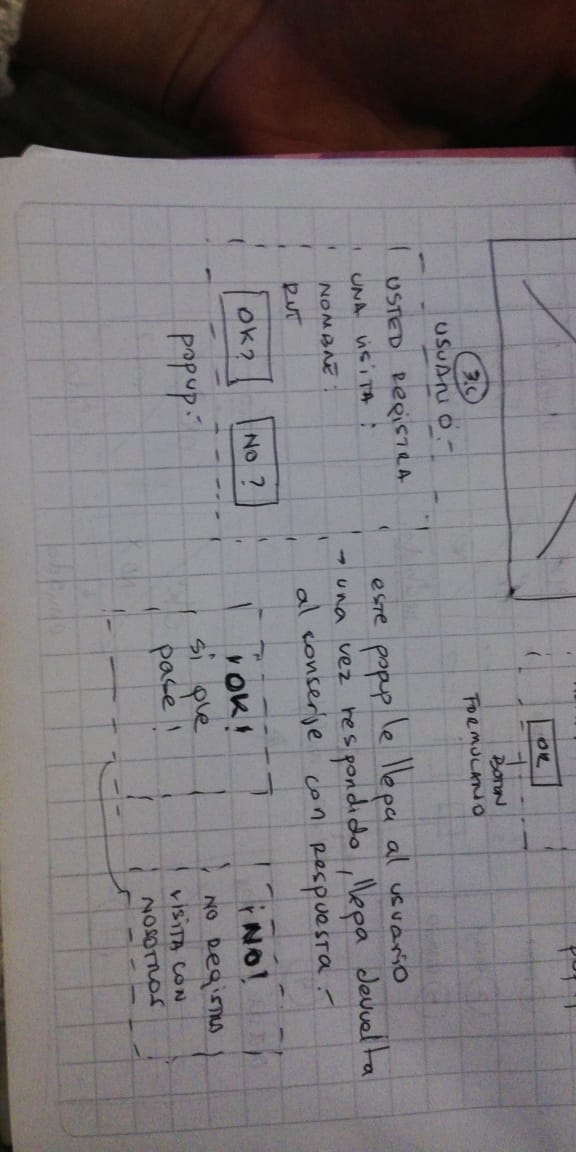 OK
BOTON
FORMULARIO
3.C
USUARIO:-
USTED REGISTRA
UNA VISITA:
NOMBRE:
RUT
OK?
NO?
popup:-
este popup le llega al usuario
→ una vez respondido, llega devuelta
al conserje con respuesta:-
¡OK!
si que
pase!
¡NO!
NO REGISTRA
VISITA CON
NOSOTROS